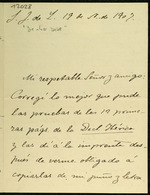 S. J. de L. 19 de 1907.
Mi respetable Señor y amigo:
Corregí lo mejor que pude
las pruebas de las 10 prime
ras págs. de la
y las di á la imprenta des
pués de verme obligado á
copiarlas de mi puño y letra